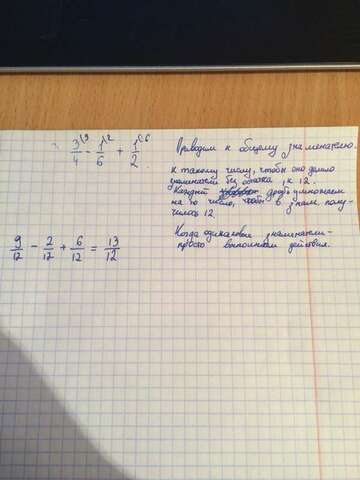 3/4 \3 - 1/6 \2 + 1/2 \6
Приводим к общему знаменателю.
к такому числу, чтобы оно делило
знаменатели без остатка, к 12.
Каждую дробь умножаем
на то число, чтобы в знам. полу-
чилось 12
9/12 - 2/12 + 6/12 = 13/12
Когда одинаковые знаменатели-
просто выполняем действия.